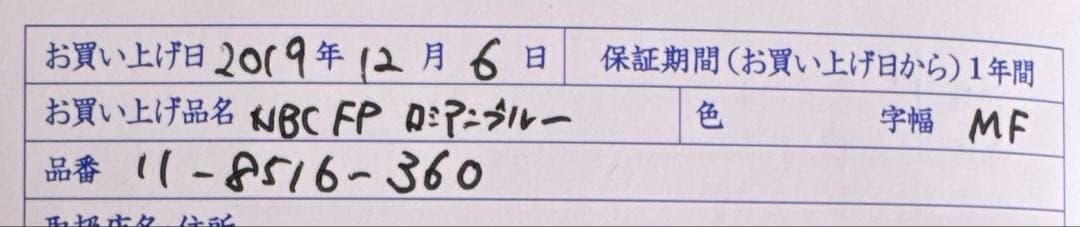 お買い上げ日 2019年 12月 6日 保証期間(お買い上げ日から)1年間
お買い上げ品名 NBC FP ロシアンブルー 色 字幅 MF
品番 11-8516-360
取扱店名・住所